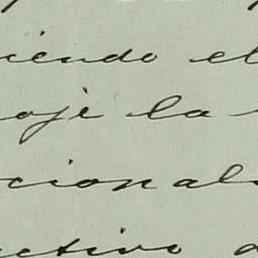 iendo el
oje la
cional
ctivo a